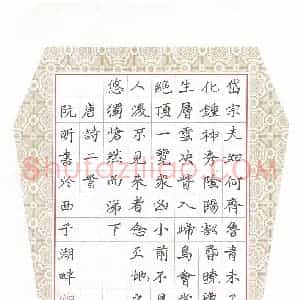 岱宗夫如何齊魯青未
化鍾神秀陰陽割昏曉
生層雲決眥入歸鳥會當
絕頂一覽眾山小前不見
人後不見來者念天地之
悠獨愴然而涕下
唐詩二首
阮昕書於西子湖畔